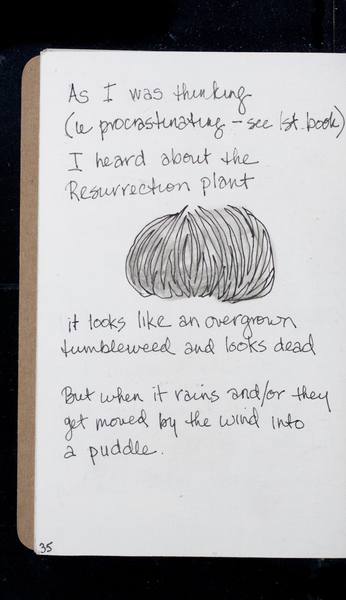 As I was thinking
(ie procrastinating - see 1st. book)
I heard about the
Resurrection plant
it looks like an overgrown
tumbleweed and looks dead
But when it rains and/or they
get moved by the wind into
a puddle.
35